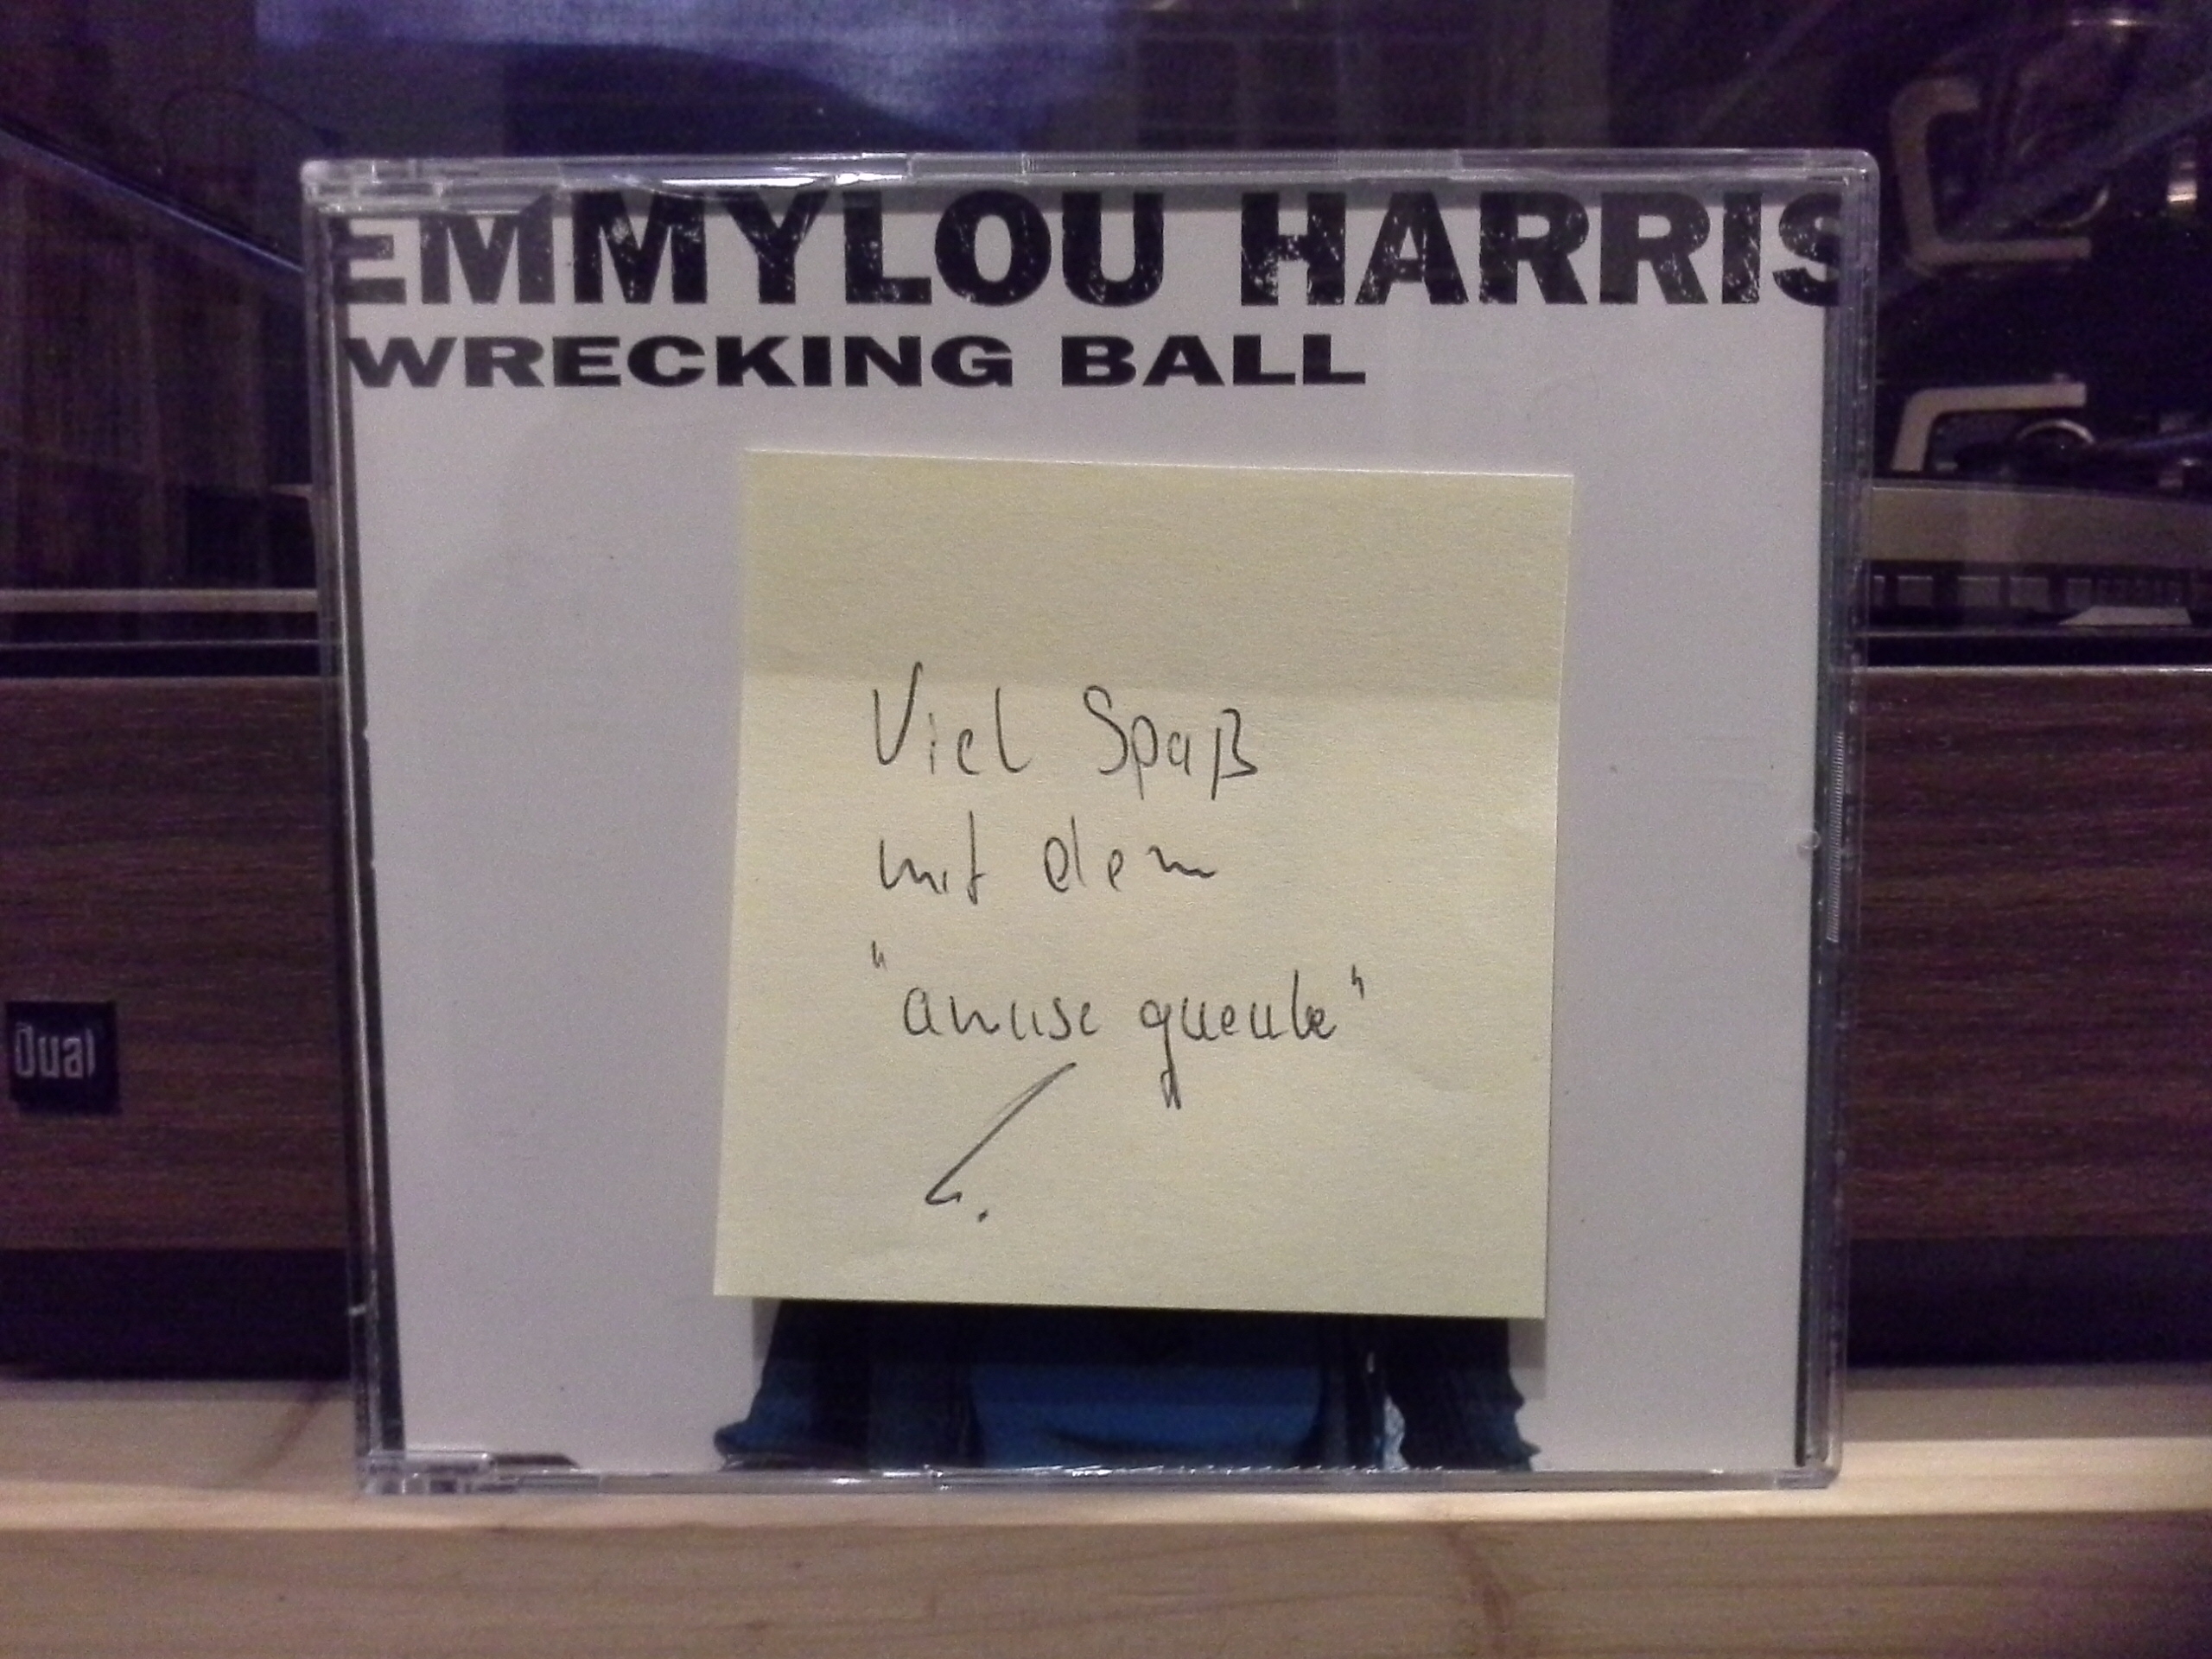 EMMYLOU HARRIS
WRECKING BALL
Viel Spaß
mit dem
"amuse gueule"
Dual